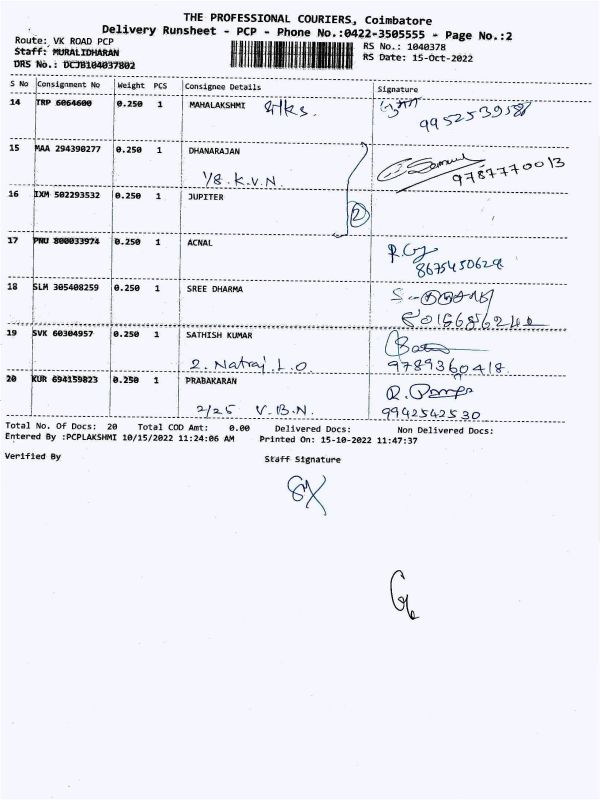 THE PROFESSIONAL COURIERS, Coimbatore
Delivery Runsheet - PCP - Phone No.:0422-3505555 - Page No.:2
Route: VK ROAD PCP
RS No.: 1040378
Staff: MURALIDHARAN
RS Date: 15-Oct-2022
DRS No.: DCJB104037802
S No Consignment No Weight PCS Consignee Details Signature
14 TRP 6064600 0.250 1 MAHALAKSHMI silks.
15 MAA 294390277 0.250 1 DHANARAJAN
1/8. K.V.N. 9787770013
16 IXM 502293532 0.250 1 JUPITER
2
17 PNU 800033974 0.250 1 ACNAL
8675450628
18 SLM 305408259 0.250 1 SREE DHARMA
19 SVK 60304957 0.250 1 SATHISH KUMAR
2. Natraj. L.O. 9789360418.
20 KUR 694159823 0.250 1 PRABAKARAN
2/25 V.B.N. 9942542530
Total No. Of Docs: 20 Total COD Amt: 0.00 Delivered Docs: Non Delivered Docs:
Entered By :PCPLAKSHMI 10/15/2022 11:24:06 AM Printed On: 15-10-2022 11:47:37
Verified By Staff Signature